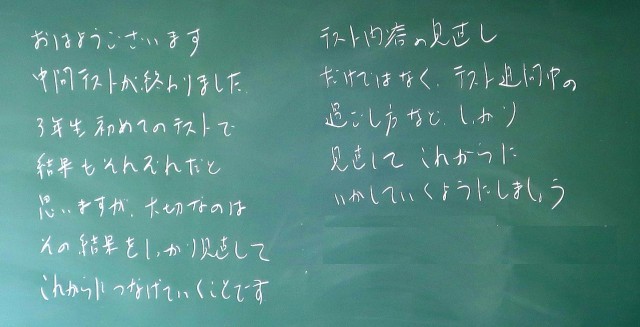 おはようございます
中間テストが終わりました。
3年生初めてのテストで
結果もそれぞれだと
思いますが、大切なのは
その結果をしっかり見直して
これからにつなげていくことです
テスト内容の見直し
だけではなく、テスト週間中の
過ごし方など、しっかり
見直して これからに
いかしていくようにしましょう